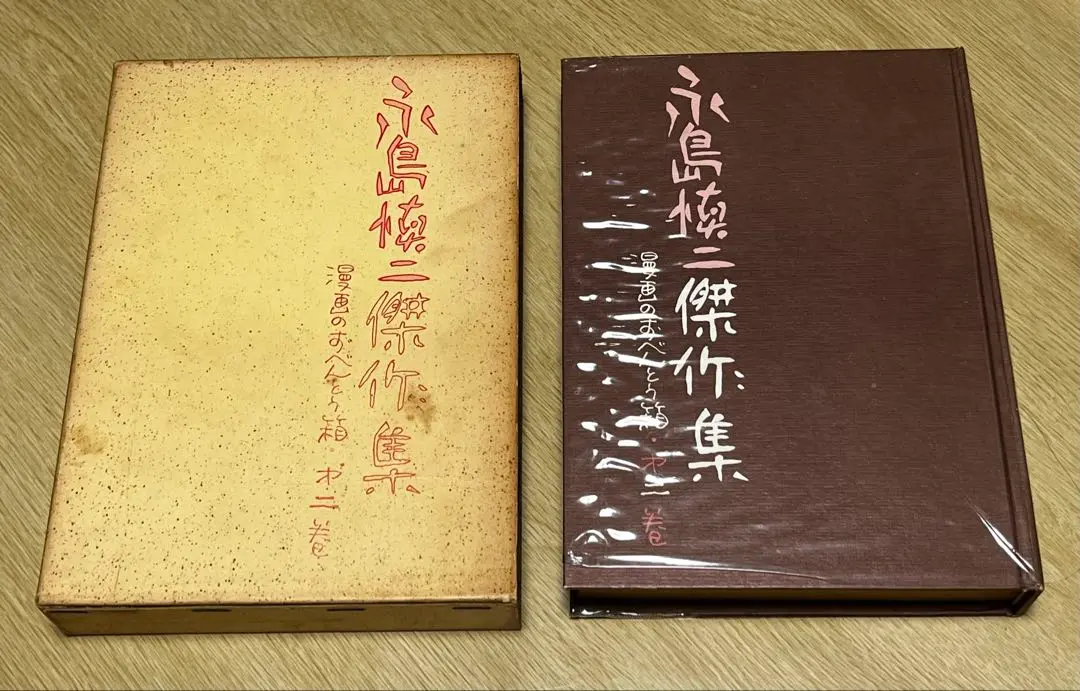 永島慎二傑作集
漫画のおべんとう箱・才二巻
永島慎二傑作集
漫画のおべんとう箱・才二巻